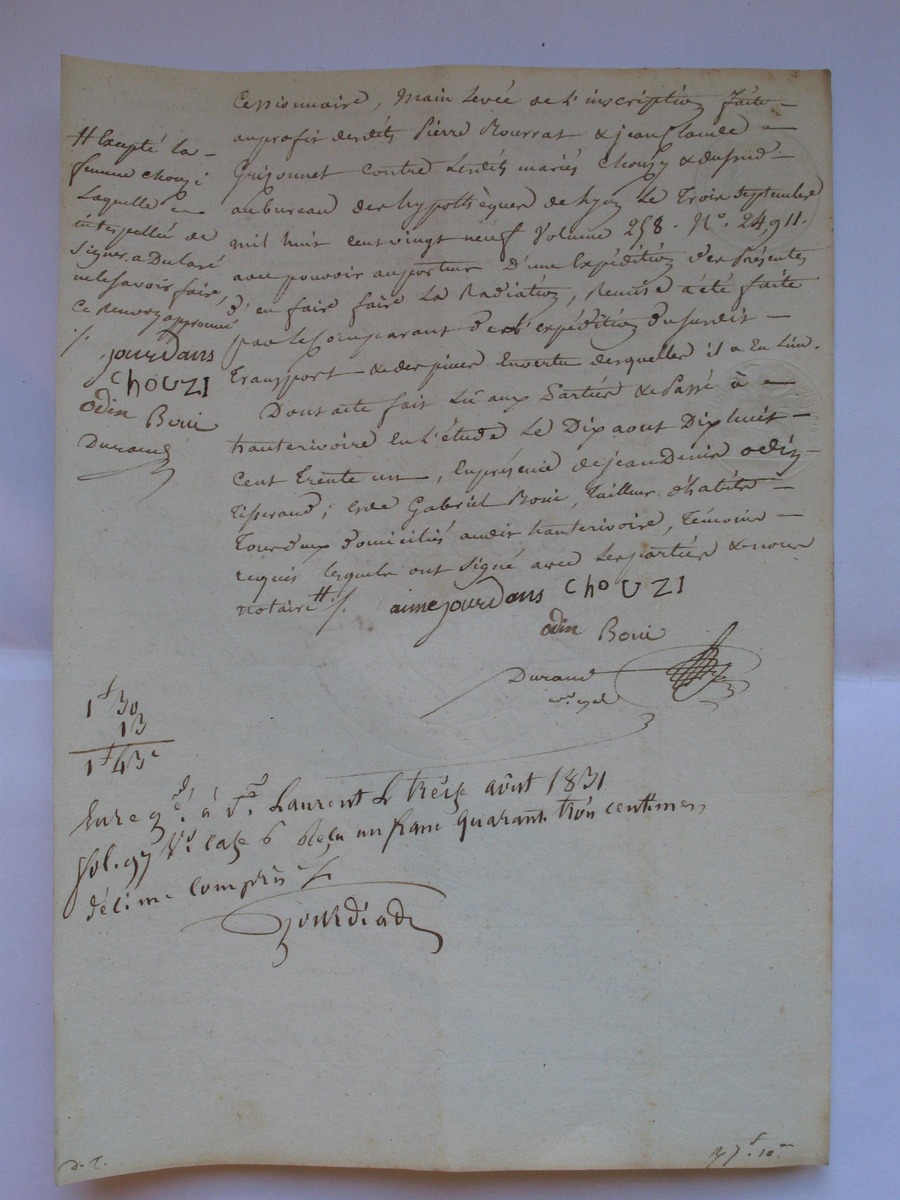 Cessionnaire, Main Levée de L'inscription faite
au profit desdits Pierre Bourrat & jean Claude
Grizonnet Contre Lesdits mariés Chouzy
au bureau des hypothèques de Le Trois Septembre
mil huit cent vingt neuf Volume 258. N°. 24,911.
avec pouvoir au porteur D'une Expédition des Présentes
d'en faire faire La Radiation, Remise a été faite
par le Comparant de L'expédition du susdit
Transport & des pièces En vertu desquelles il a Eu Lieu.
Dont acte fait Lu aux Parties & Passé à
hauterivoire En L'étude Le Dix aout Dix huit
Cent Trente un, En présence de jean Denis odin
Tisserand, & de Gabriel Boni, Tailleur d'habits
Tous deux Domiciliés audit hauterivoire, Témoins
requis lesquels ont Signé avec Les parties & nous
notaire #/.
# Excepté La
femme chouzi
Laquelle
interpellée de
Signer a Déclaré
ne le savoir faire,
Ce Renvoy approuvé
/.
jourdans
ChOUZI
odin Boni
Durand
aime jourdans ChOUZI
odin Boni
Durand
1f 30
13
1f 43c
Enregé. à St. Laurent Le treize août 1831
fol. 97 Vo. Case 6 Reçu un franc quarante trois centimes,
décime Compris